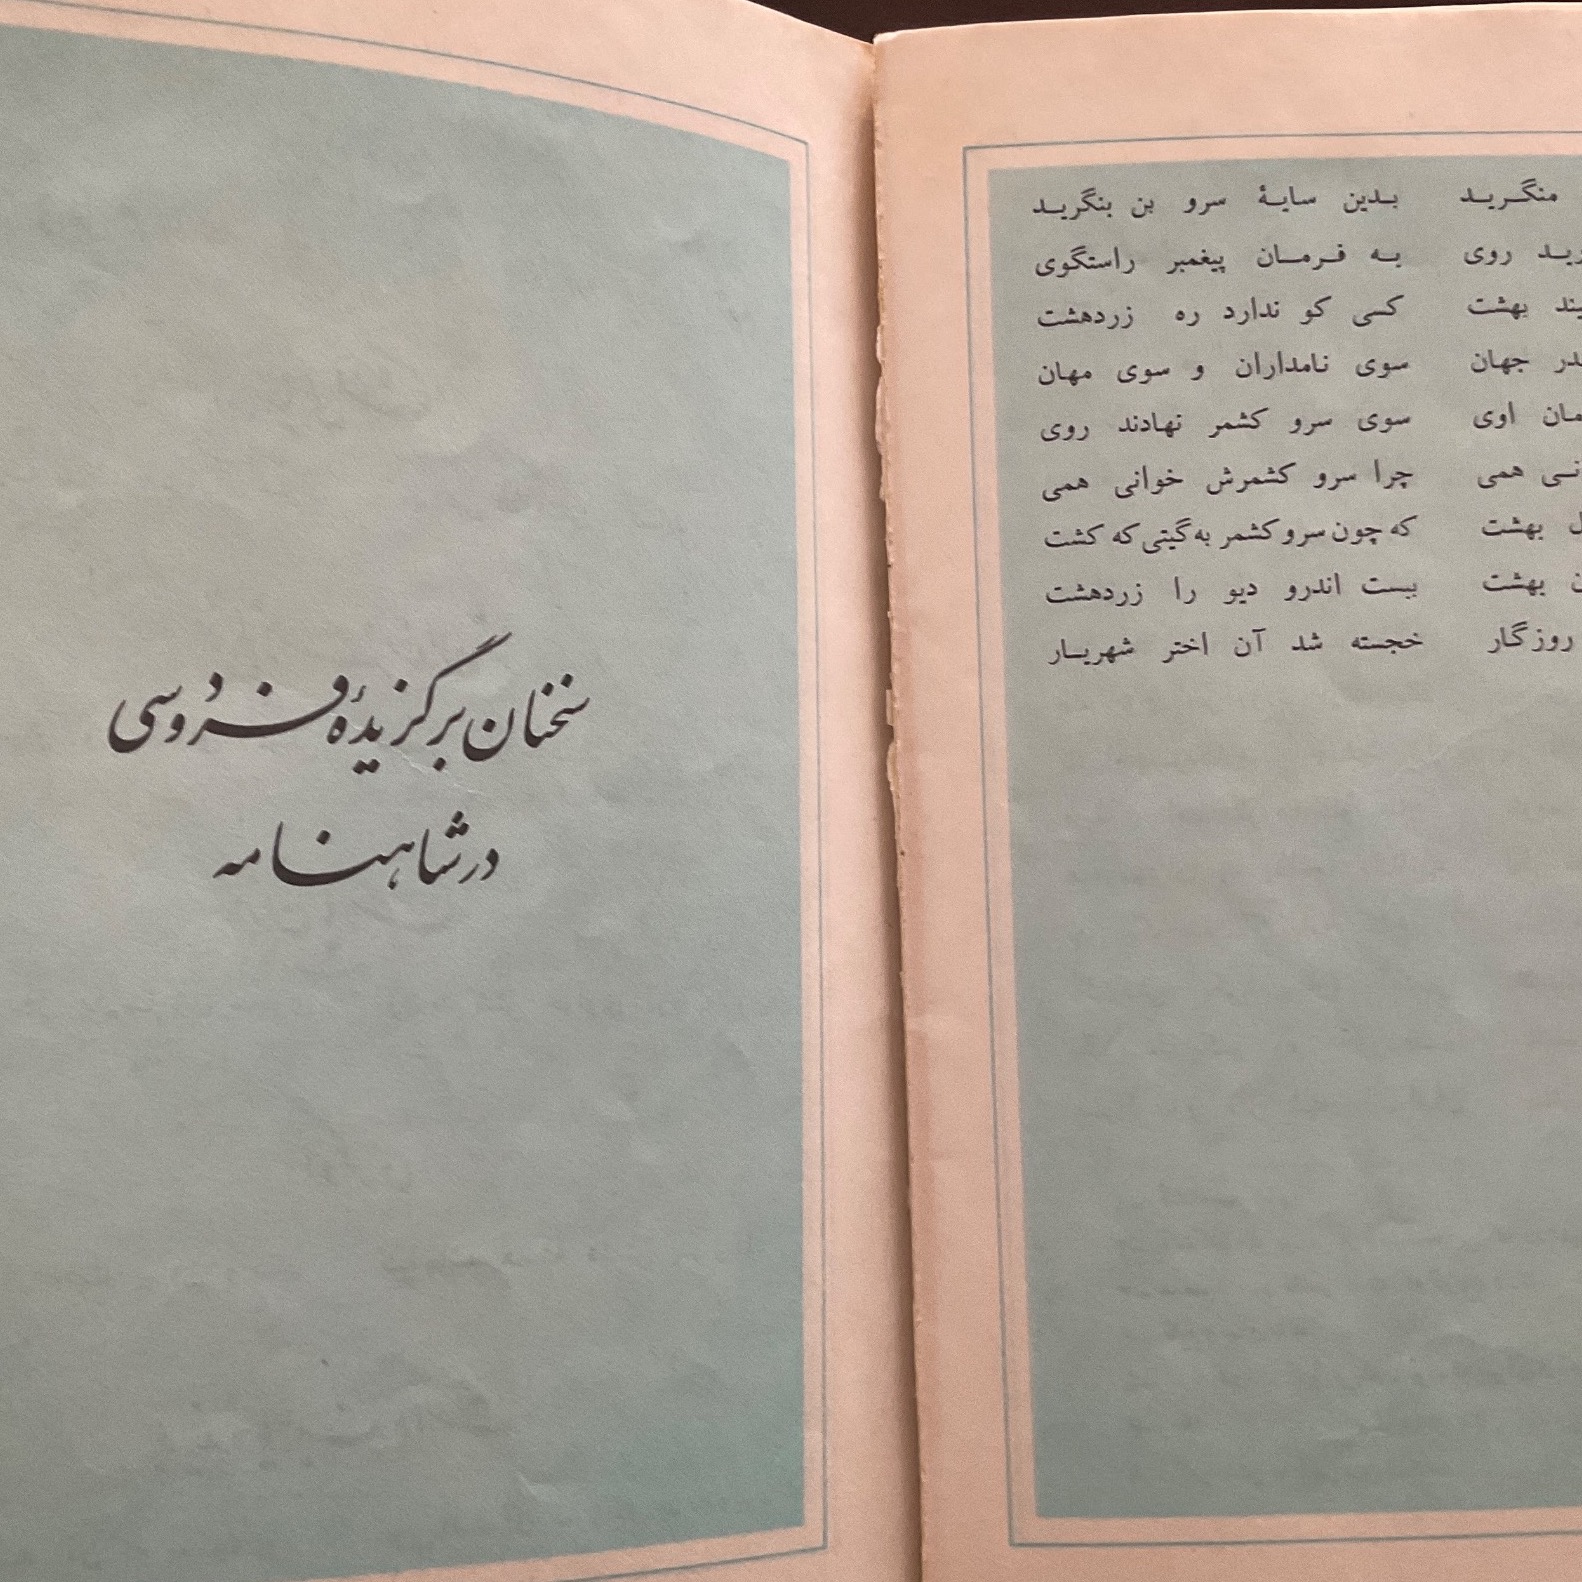 منگرید بدین سایهٔ سرو بن بنگرید
روی به فرمان پیغمبر راستگوی
بهشت کسی کو ندارد ره زردهشت
جهان سوی نامداران و سوی مهان
اوی سوی سرو کشمر نهادند روی
همی چرا سرو کشمرش خوانی همی
بهشت که چون سرو کشمر به گیتی که کشت
بهشت ببست اندرو دیو را زردهشت
روزگار خجسته شد آن اختر شهریار
سخنان برگزیدهٔ فردوسی
در شاهنامه